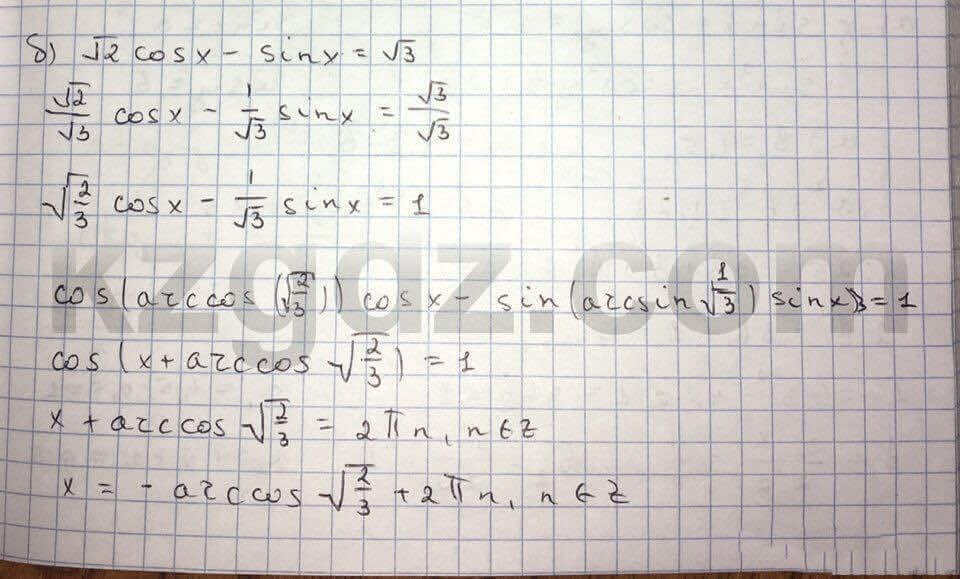 б) √2 cosx - sinx = √3
√2/√3 cosx - 1/√3 sinx = √3/√3
√(2/3) cosx - 1/√3 sinx = 1
kzgdz.com
cos(arccos(√(2/3))) cosx - sin(arcsin 1/√3) sinx = 1
cos(x + arccos √(2/3)) = 1
x + arccos √(2/3) = 2πn, n∈Z
x = - arccos √(2/3) + 2πn, n∈Z